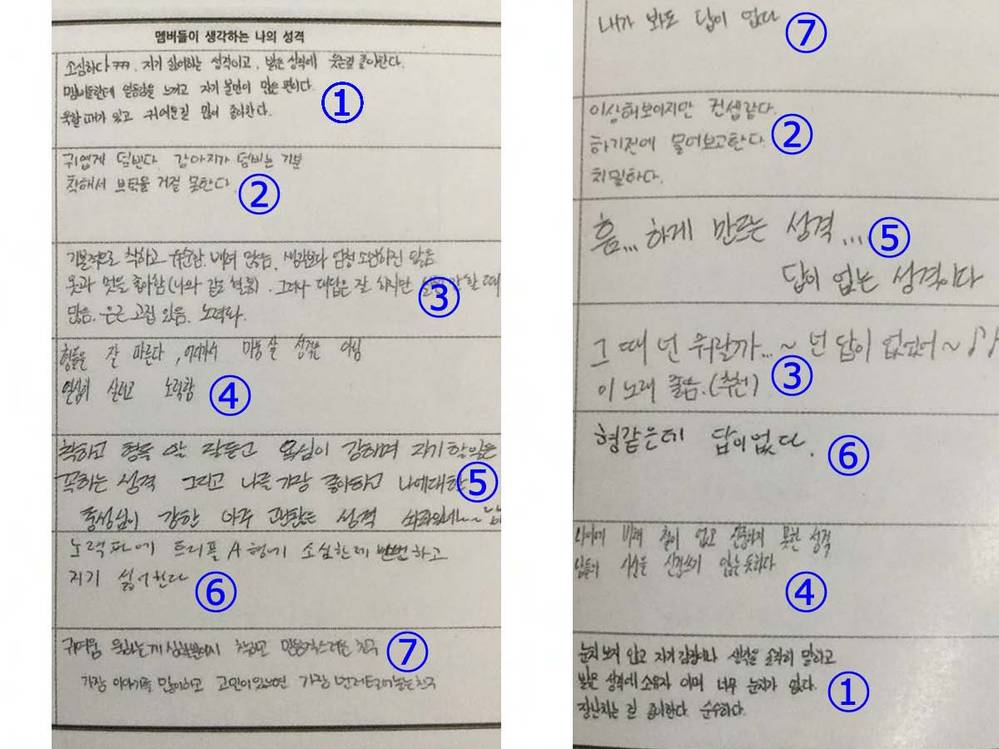 멤버들이 생각하는 나의 성격
소심하다 ㅋㅋㅋ, 지기 싫어하는 성격이고, 밝은 성격에 웃는걸 좋아한다.
느끼고 자기 불만이 많은 편이다.
욱할때가 있고 귀여운짓 많이 좋아한다.
①
귀엽게 덤빈다 강아지가 덤비는 기분
착해서 부탁을 거절 못한다.
②
기본적으로 착하고 유순함. 배려 많음. 생각보다 엄청 소심하진 않음
옷과 멋을 좋아함(나와 같은 혈통). 그래서 대답은 잘 하지만 할 때
많음. 은근 고집 있음. 노력파.
③
형들을 잘 따른다, 성격은 아님
열심히 살려고 노력함
④
착하고 형들 말 잘듣고 욕심이 강하며 자기 할일은
꼭하는 성격 그리고 나를 가장 좋아하고 나에대한
충성심이 강한 아주 괜찮은 성격
⑤
노력파에 트리플 A형에 소심한데 뻔뻔하고
지기 싫어한다
⑥
귀여움 착하고 믿음직스러운 친구
가장 이야기를 많이하고 고민이있으면 가장 먼저 털어놓는친구
⑦
내가 봐도 답이 없다
⑦
이상해보이지만 컨셉같다.
하기전에 물어보고한다.
치밀하다.
②
흠... 하게 만드는 성격...
답이 없는 성격이다
⑤
그 때 넌 뭐랄까...~ 넌 답이 없었어~♪♪
이 노래 좋음.(추천)
③
형같은데 답이없다.
⑥
나이에 비해 철이 없고 신중하지 못한 성격
남들의 시선을 신경쓰지 않는듯하다
④
눈치 보지 않고 자기 감정이나 생각을 솔직히 말하고
밝은 성격에 소유자 이며 너무 눈치가 없다.
장난치는 걸 좋아한다 순수하다.
①